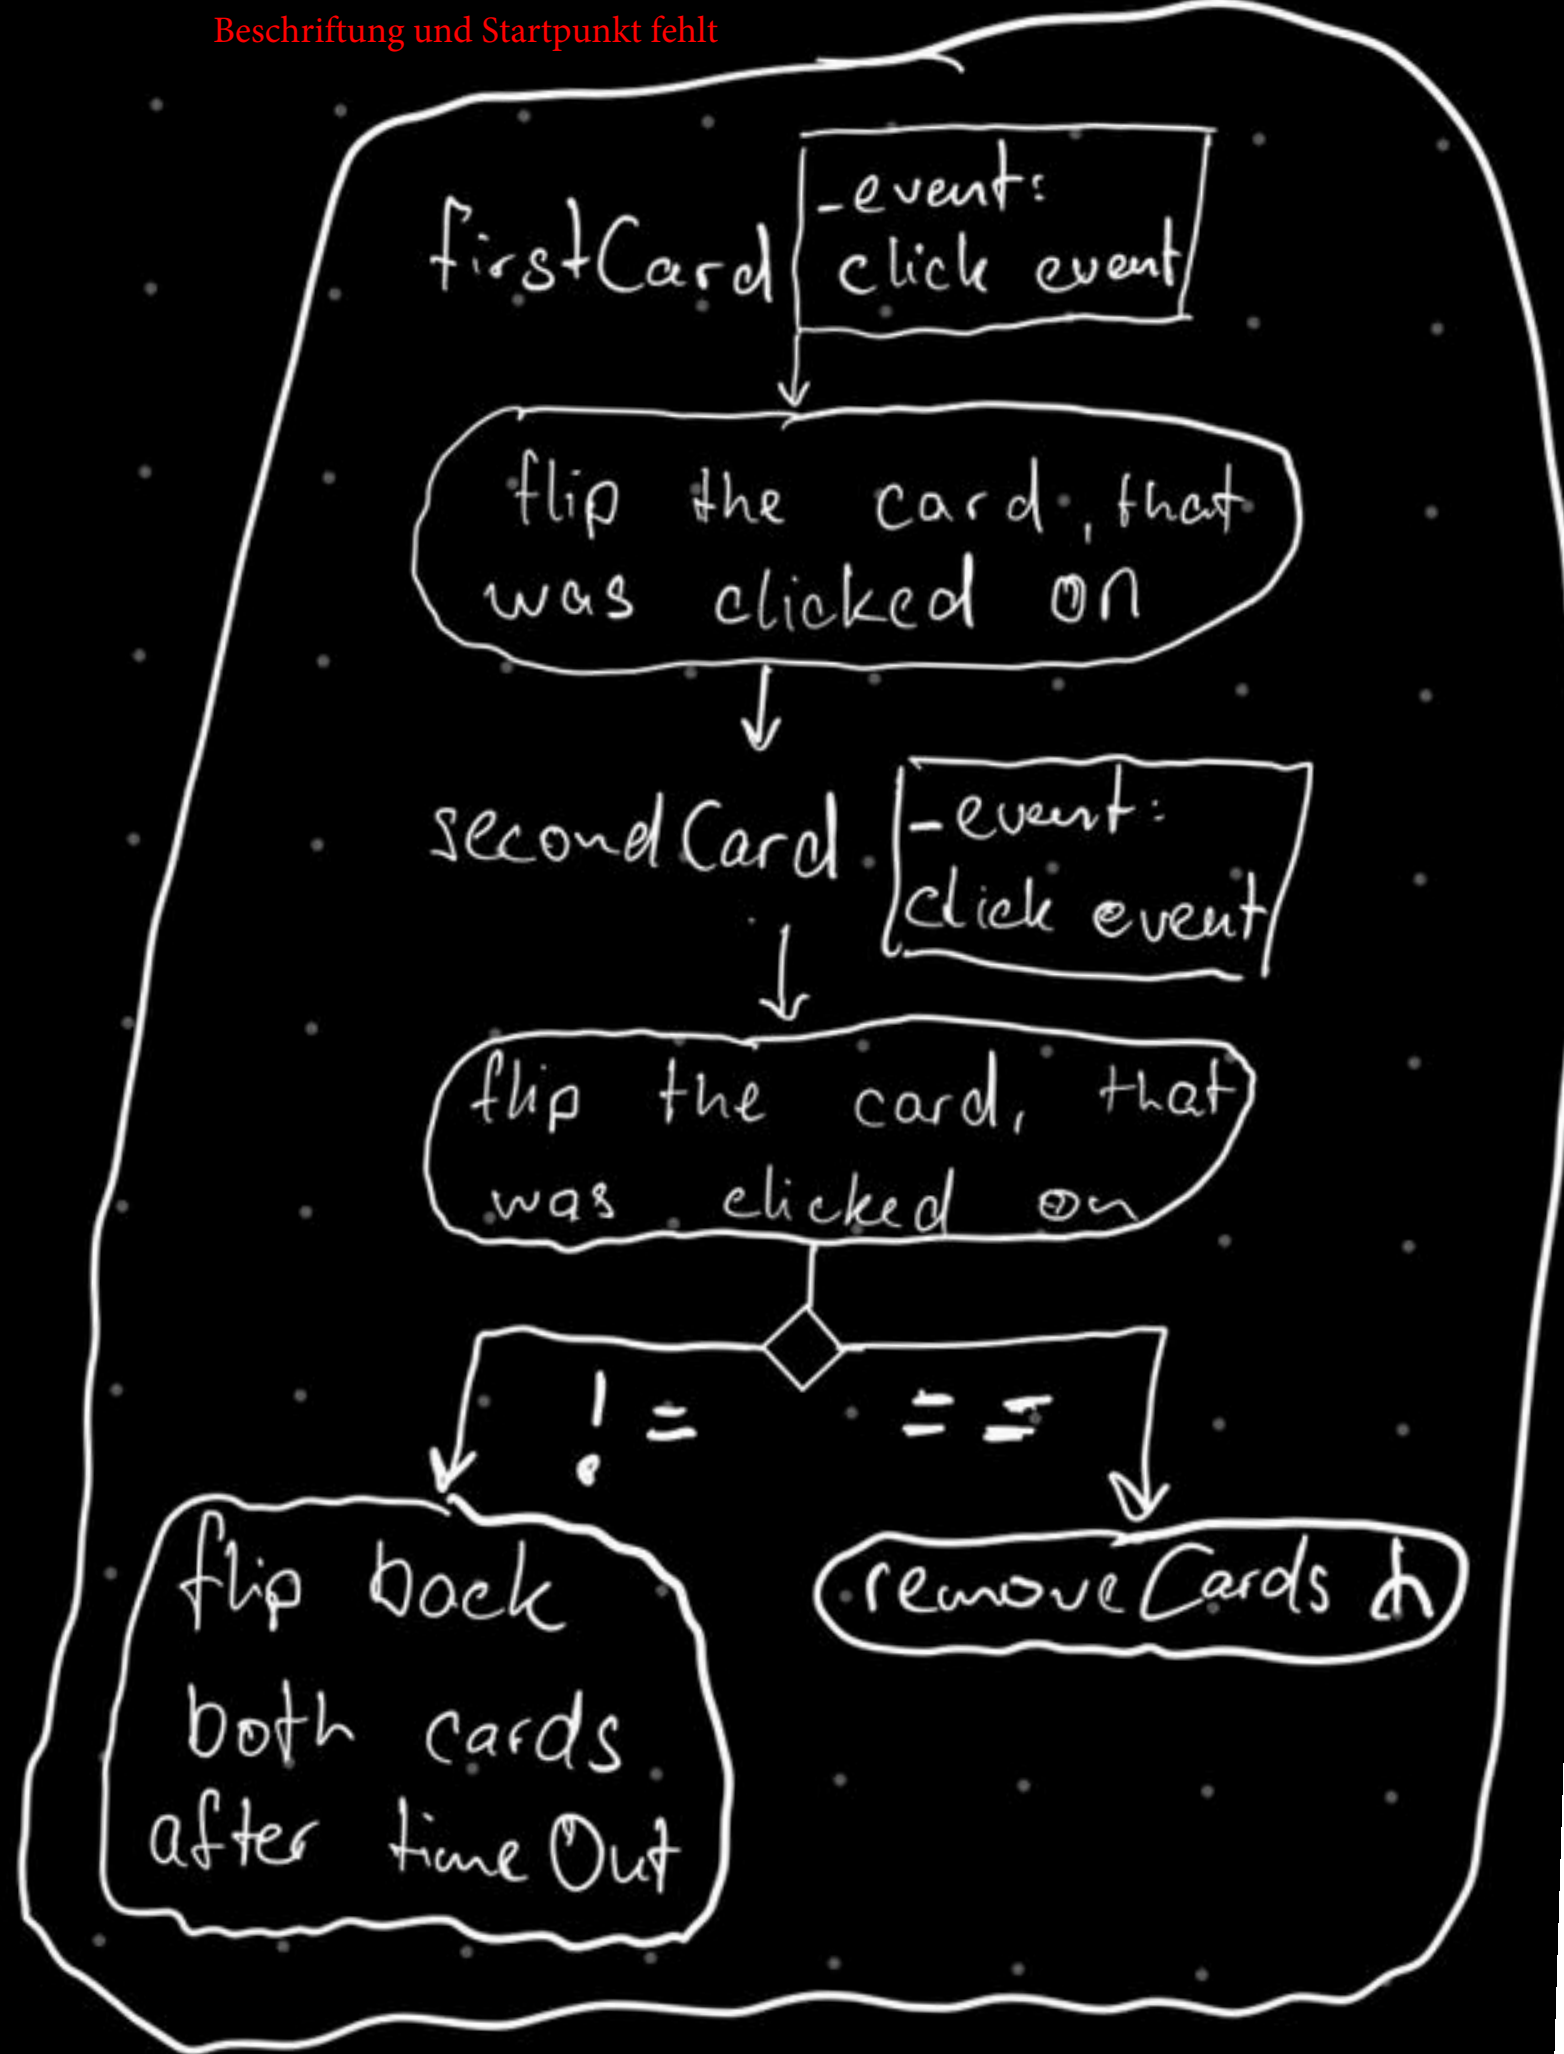 Beschriftung und Startpunkt fehlt
firstCard
- event:
click event
flip the card, that
was clicked on
secondCard
- event:
click event
flip the card, that
was clicked on
! =
= =
flip back
both cards
after timeOut
removeCards